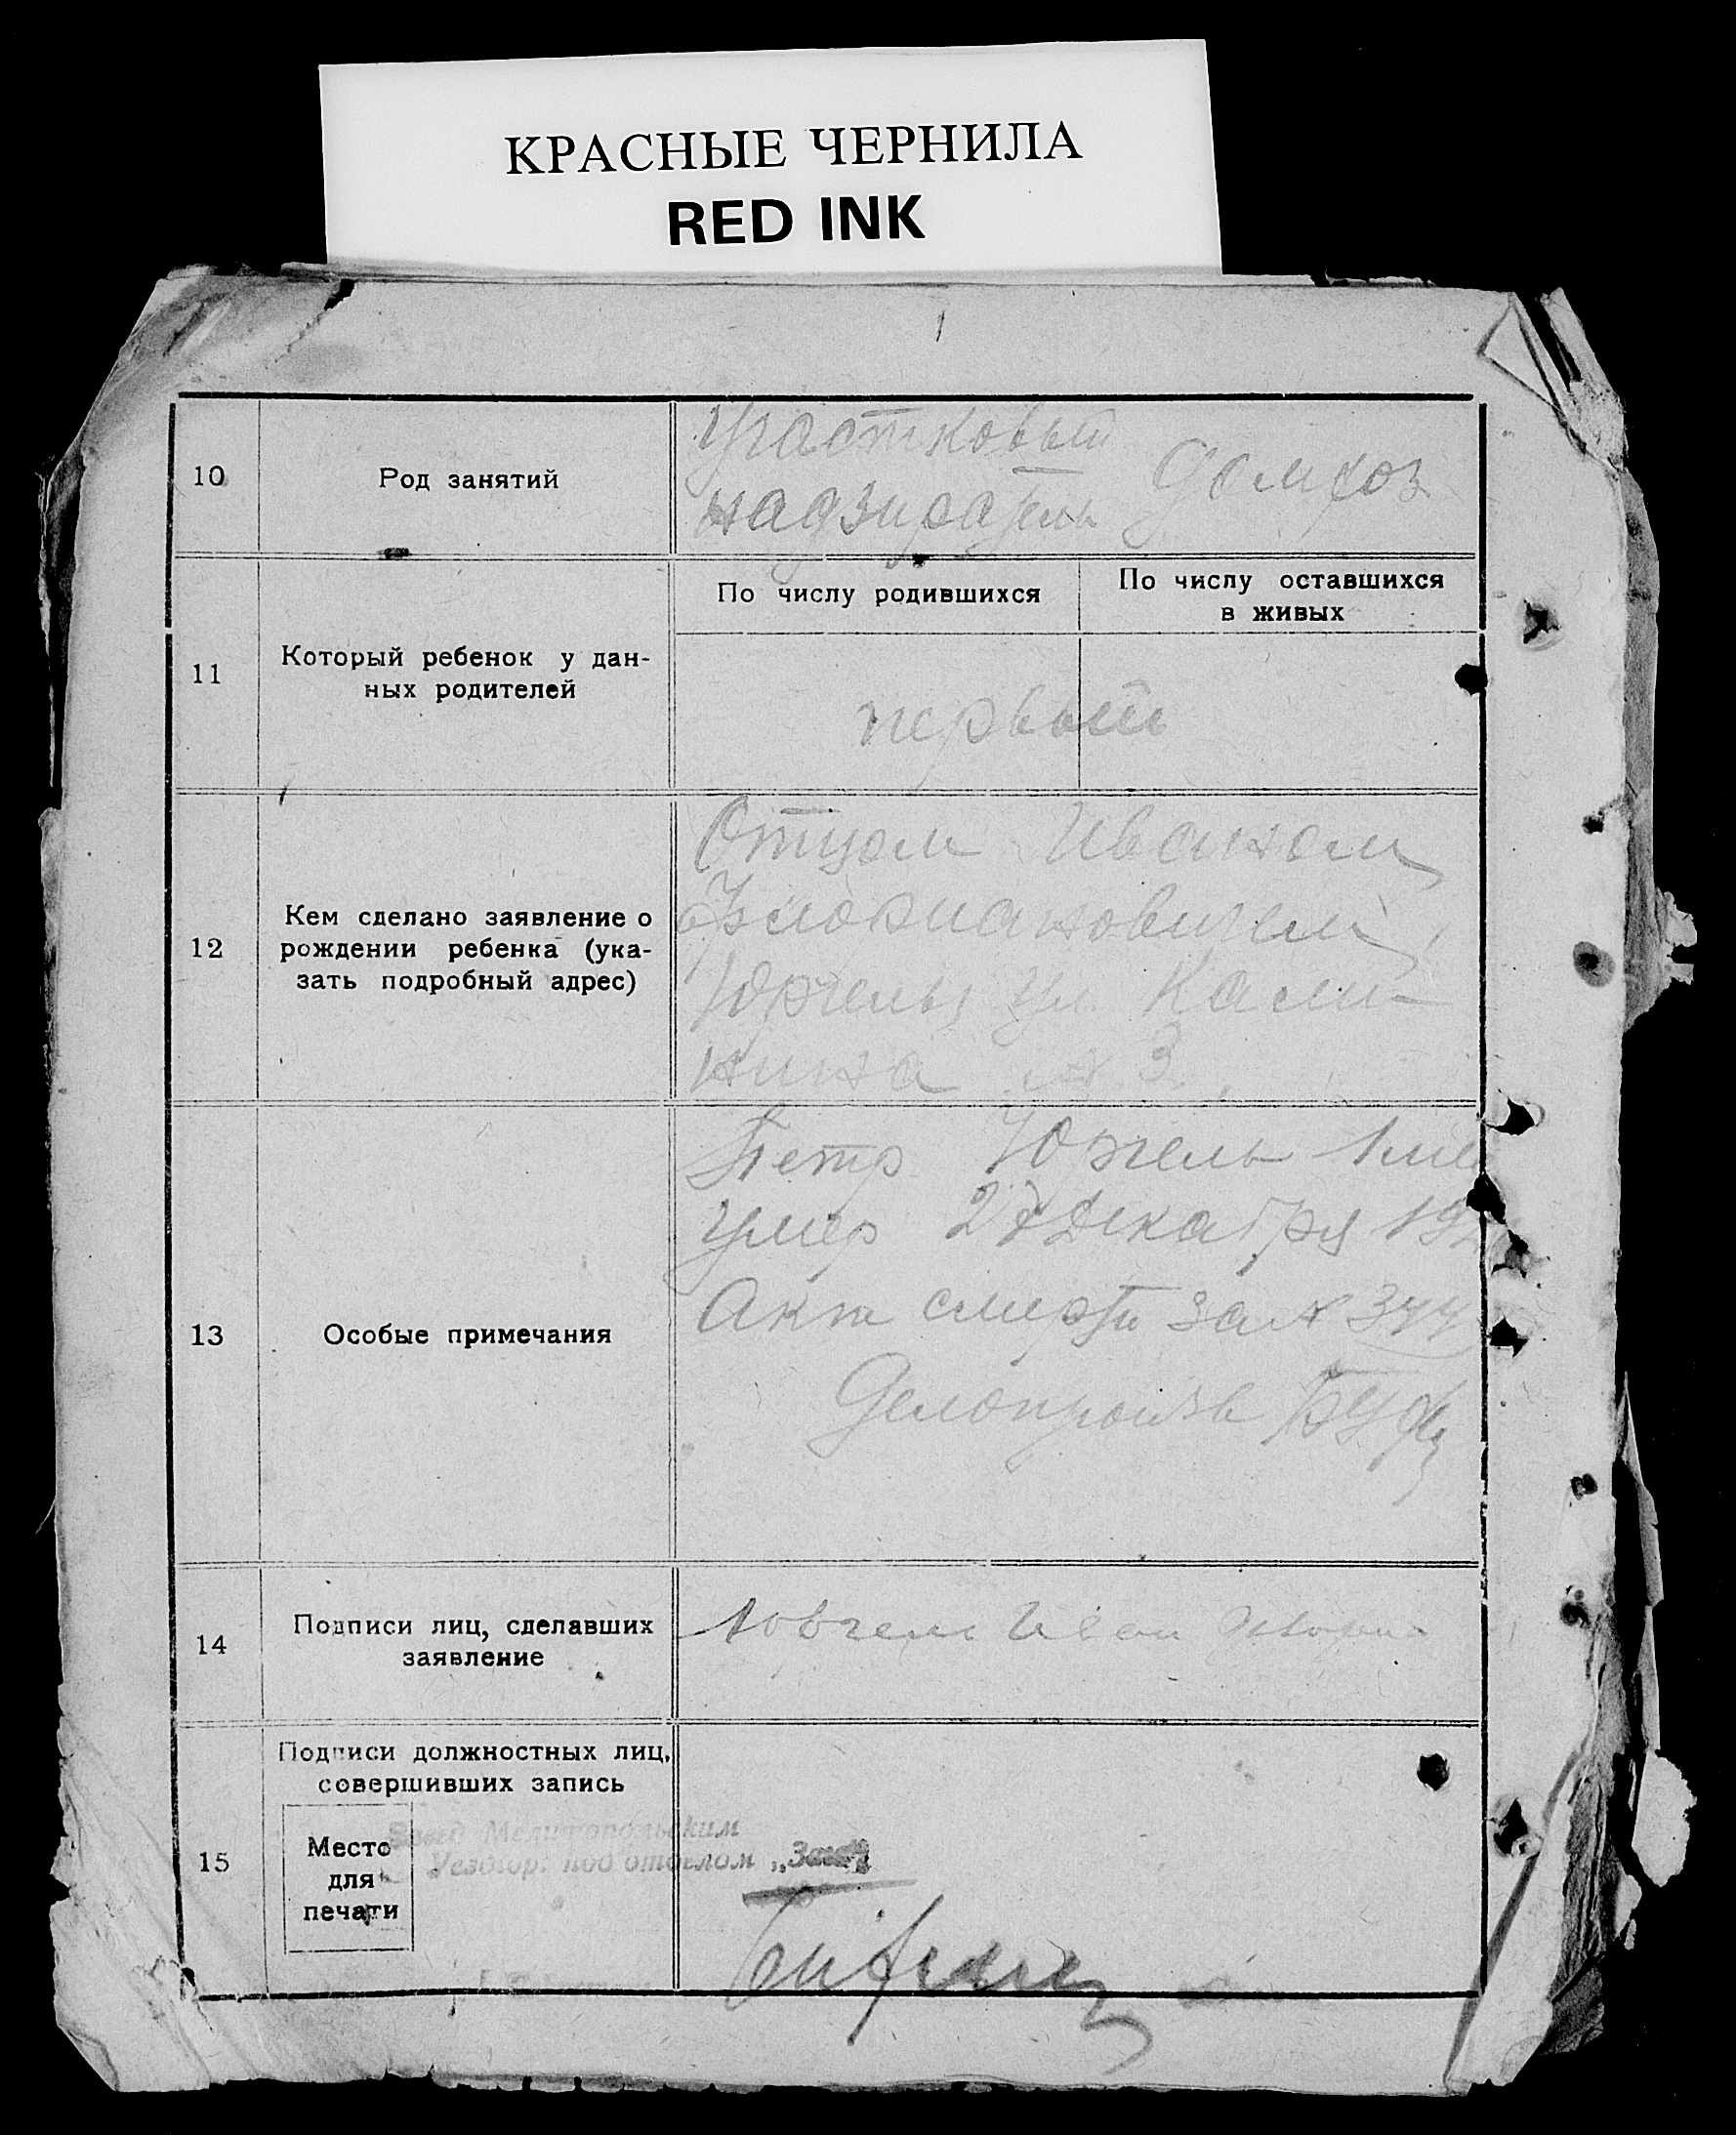 КРАСНЫЕ ЧЕРНИЛА
RED INK
10
Род занятий
Участковый
надзиратель
Домхоз
11
Который ребенок у дан-
ных родителей
По числу родившихся
По числу оставшихся
в живых
первый
12
Кем сделано заявление о
рождении ребенка (ука-
зать подробный адрес)
Отцом Иваном
Юргель, ул. Кали-
нина № 3
13
Особые примечания
Петр Юргель
умер 27 декабря 192
Акт смерти за № 344
Делопроизв
14
Подписи лиц, сделавших
заявление
Иван
15
Подписи должностных лиц,
совершивших запись
Место
для
печати
Завед Мелитопольским
Уездгор. под отделом „Загс"